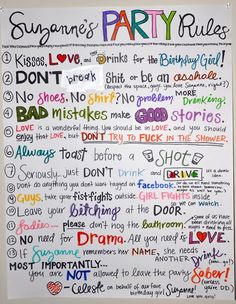 Suzanne's PARTY Rules
① Kisses, LOVE, and Drinks for the Birthday Girl!
② DON'T break Shit or be an asshole.
(Respect the space, guys! You love Suzanne, right?)
③ No Shoes, No Shirt? No problem MORE Dranking.
④ BAD mistakes make GOOD stories.
⑤ LOVE is a wonderful thing. You should be in LOVE, and you should
enjoy that LOVE, but DON'T TRY TO FUCK IN THE SHOWER.
Always Toast before a SHOT
⑦ Seriously, just DON'T Drink and DRIVE
⑧ Don't do anything you don't want tagged on facebook.
⑨ Guys, take your fist-fights outside. GIRL FIGHTS inside
⑩ Leave your bitching at the DOOR.
⑪ Ladies... please don't hog the bathroom.
⑫ No need for Drama. All you need is LOVE.
⑬ If Suzanne remembers her NAME, she needs Another Drink
MOST IMPORTANTLY:
You are NOT allowed to leave the party Sober!
-Celeste on behalf of our fave birthday girl Suzanne